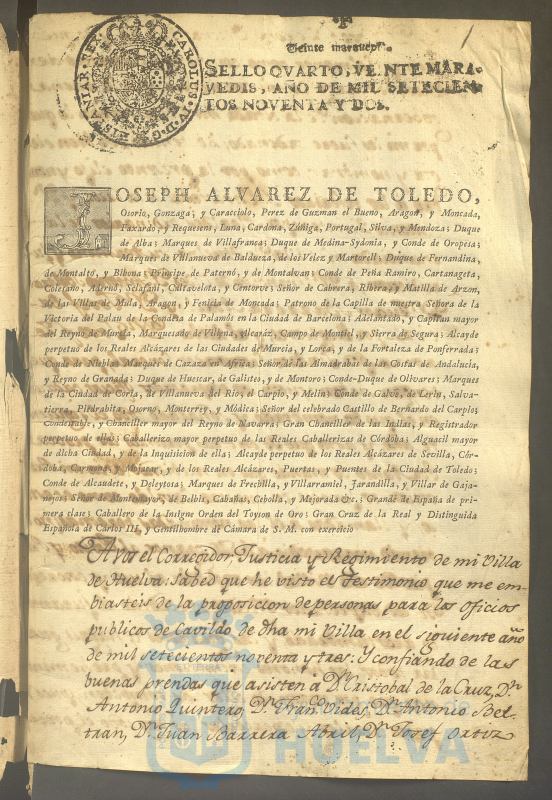 1
Veinte maravedis.
SELLO QVARTO, VEINTE MARA-
VEDIS, AÑO DE MIL SETECIEN-
TOS NOVENTA Y DOS.
CAROLUS IV D. G. HISPANIAR. REX
JOSEPH ALVAREZ DE TOLEDO,
Osorio, Gonzaga; y Caracciolo, Perez de Guzman el Bueno, Aragon, y Moncada,
Faxardo, y Requesens, Luna, Cardona, Zúñiga, Portugal, Silva, y Mendoza; Duque
de Alba; Marques de Villafranca; Duque de Medina-Sydonia, y Conde de Oropesa;
Marques de Villanueva de Baldueza, de los Velez y Martorell; Duque de Fernandina,
de Montalto, y Bibona; Príncipe de Paternó, y de Montalvan; Conde de Peña Ramiro, Cartanageta,
Colesano, Adernó, Selafani, Caltavelota, y Centorve; Señor de Cabrera, Ribera, y Matilla de Arzon,
de las Villas de Mula, Aragon, y Fenicia de Moncada; Patrono de la Capilla de nuestra Señora de la
Victoria del Palau de la Condesa de Palamós en la Ciudad de Barcelona; Adelantado, y Capitan mayor
del Reyno de Murcia, Marquesado de Villena, Alcaráz, Campo de Montiel, y Sierra de Segura; Alcayde
perpetuo de los Reales Alcázares de las Ciudades de Murcia, y Lorca, y de la Fortaleza de Ponferrada;
Conde de Niebla; Marques de Cazaza en Africa; Señor de las Almadrabas de las Costas de Andalucía,
y Reyno de Granada; Duque de Huescar, de Galisteo, y de Montoro; Conde-Duque de Olivares; Marques
de la Ciudad de Coria, de Villanueva del Rio, el Carpio, y Melin; Conde de Galve, de Lerin, Salva-
tierra, Piedrahita, Osorno, Monterrey, y Módica; Señor del celebrado Castillo de Bernardo del Carpio;
Condestable, y Chanciller mayor del Reyno de Navarra; Gran Chanciller de las Indias, y Registrador
perpetuo de ellas; Caballerizo mayor perpetuo de las Reales Caballerizas de Córdoba; Alguacil mayor
de dicha Ciudad, y de la Inquisicion de ella; Alcayde perpetuo de los Reales Alcázares de Sevilla, Cór-
doba, Carmona, y Mojacar, y de los Reales Alcázares, Puertas, y Puentes de la Ciudad de Toledo;
Conde de Alcaudete, y Deleytosa; Marques de Frechilla, y Villarramiel, Jarandilla, y Villar de Gaja-
nejos; Señor de Montemayor, de Belbis, Cabañas, Cebolla, y Mejorada &c.; Grande de España de pri-
mera clase; Caballero de la Insigne Orden del Toyson de Oro; Gran Cruz de la Real y Distinguida
Española de Carlos III, y Gentilhombre de Cámara de S. M. con exercicio
A vos el Corregidor, Justicia y Regimiento de mi Villa
de Huelva: Sabed que he visto el testimonio que me em-
biasteis de la proposicion de personas para los oficios
publicos de Cavildo de dha mi Villa en el siguiente año
de mil setecientos noventa y tres: Y confiando de las
buenas prendas que asisten á Dn. Cristobal de la Cruz, Dn.
Antonio Quintero, Dn. Franco. Vides, Dn. Antonio Bel-
tran, Dn. Juan Barrera Abril, Dn. Josef Ortiz
HUELVA